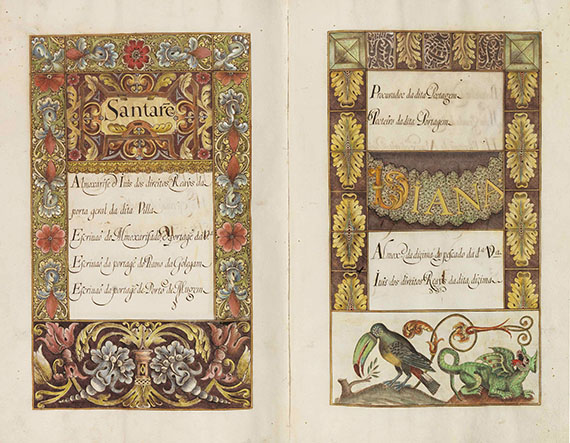 Santarē
Almoxarife o Iuis dos direitos Reaẏos da
porta geral da dita Villa
Escriuaõ do Almoxarifado o Portagẽ da Vª
Escriuaõ da portagẽ do Ramo da Golagam
Escriuaõ da portagẽ do Porto de Mugem
Procurador da dita Portagem
Porteiro da dita Portagem
VIANA
Almox.e da dizima do pescado da dª Vª
Iuis dos direitos Reaẏs da dita dizima